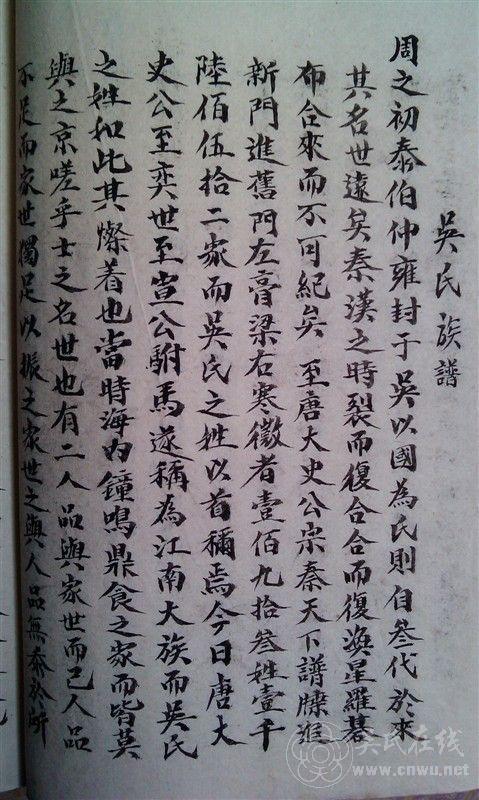 吳氏族譜
周之初泰伯仲雍封于吳以國為氏則自叄代於來
其名世遠矣秦漢之時裂而復合合而復渙星羅碁
布合來而不可紀矣 至唐大史公宗秦天下譜牒進
新門進舊門左膏梁右寒微者壹佰九拾叄姓壹千
陸佰伍拾二家而吳氏之姓以首稱焉今日唐大
史公至奕世至宣公駙馬遂稱為江南大族而吳氏
之姓和此其燦着也當時海內鐘鳴鼎食之家而皆莫
與之京嗟乎士之名世也有二人品與家世而已人品
不足而家世獨足以振之家世之與人品無忝於所
吳氏在线
www.cnwu.net